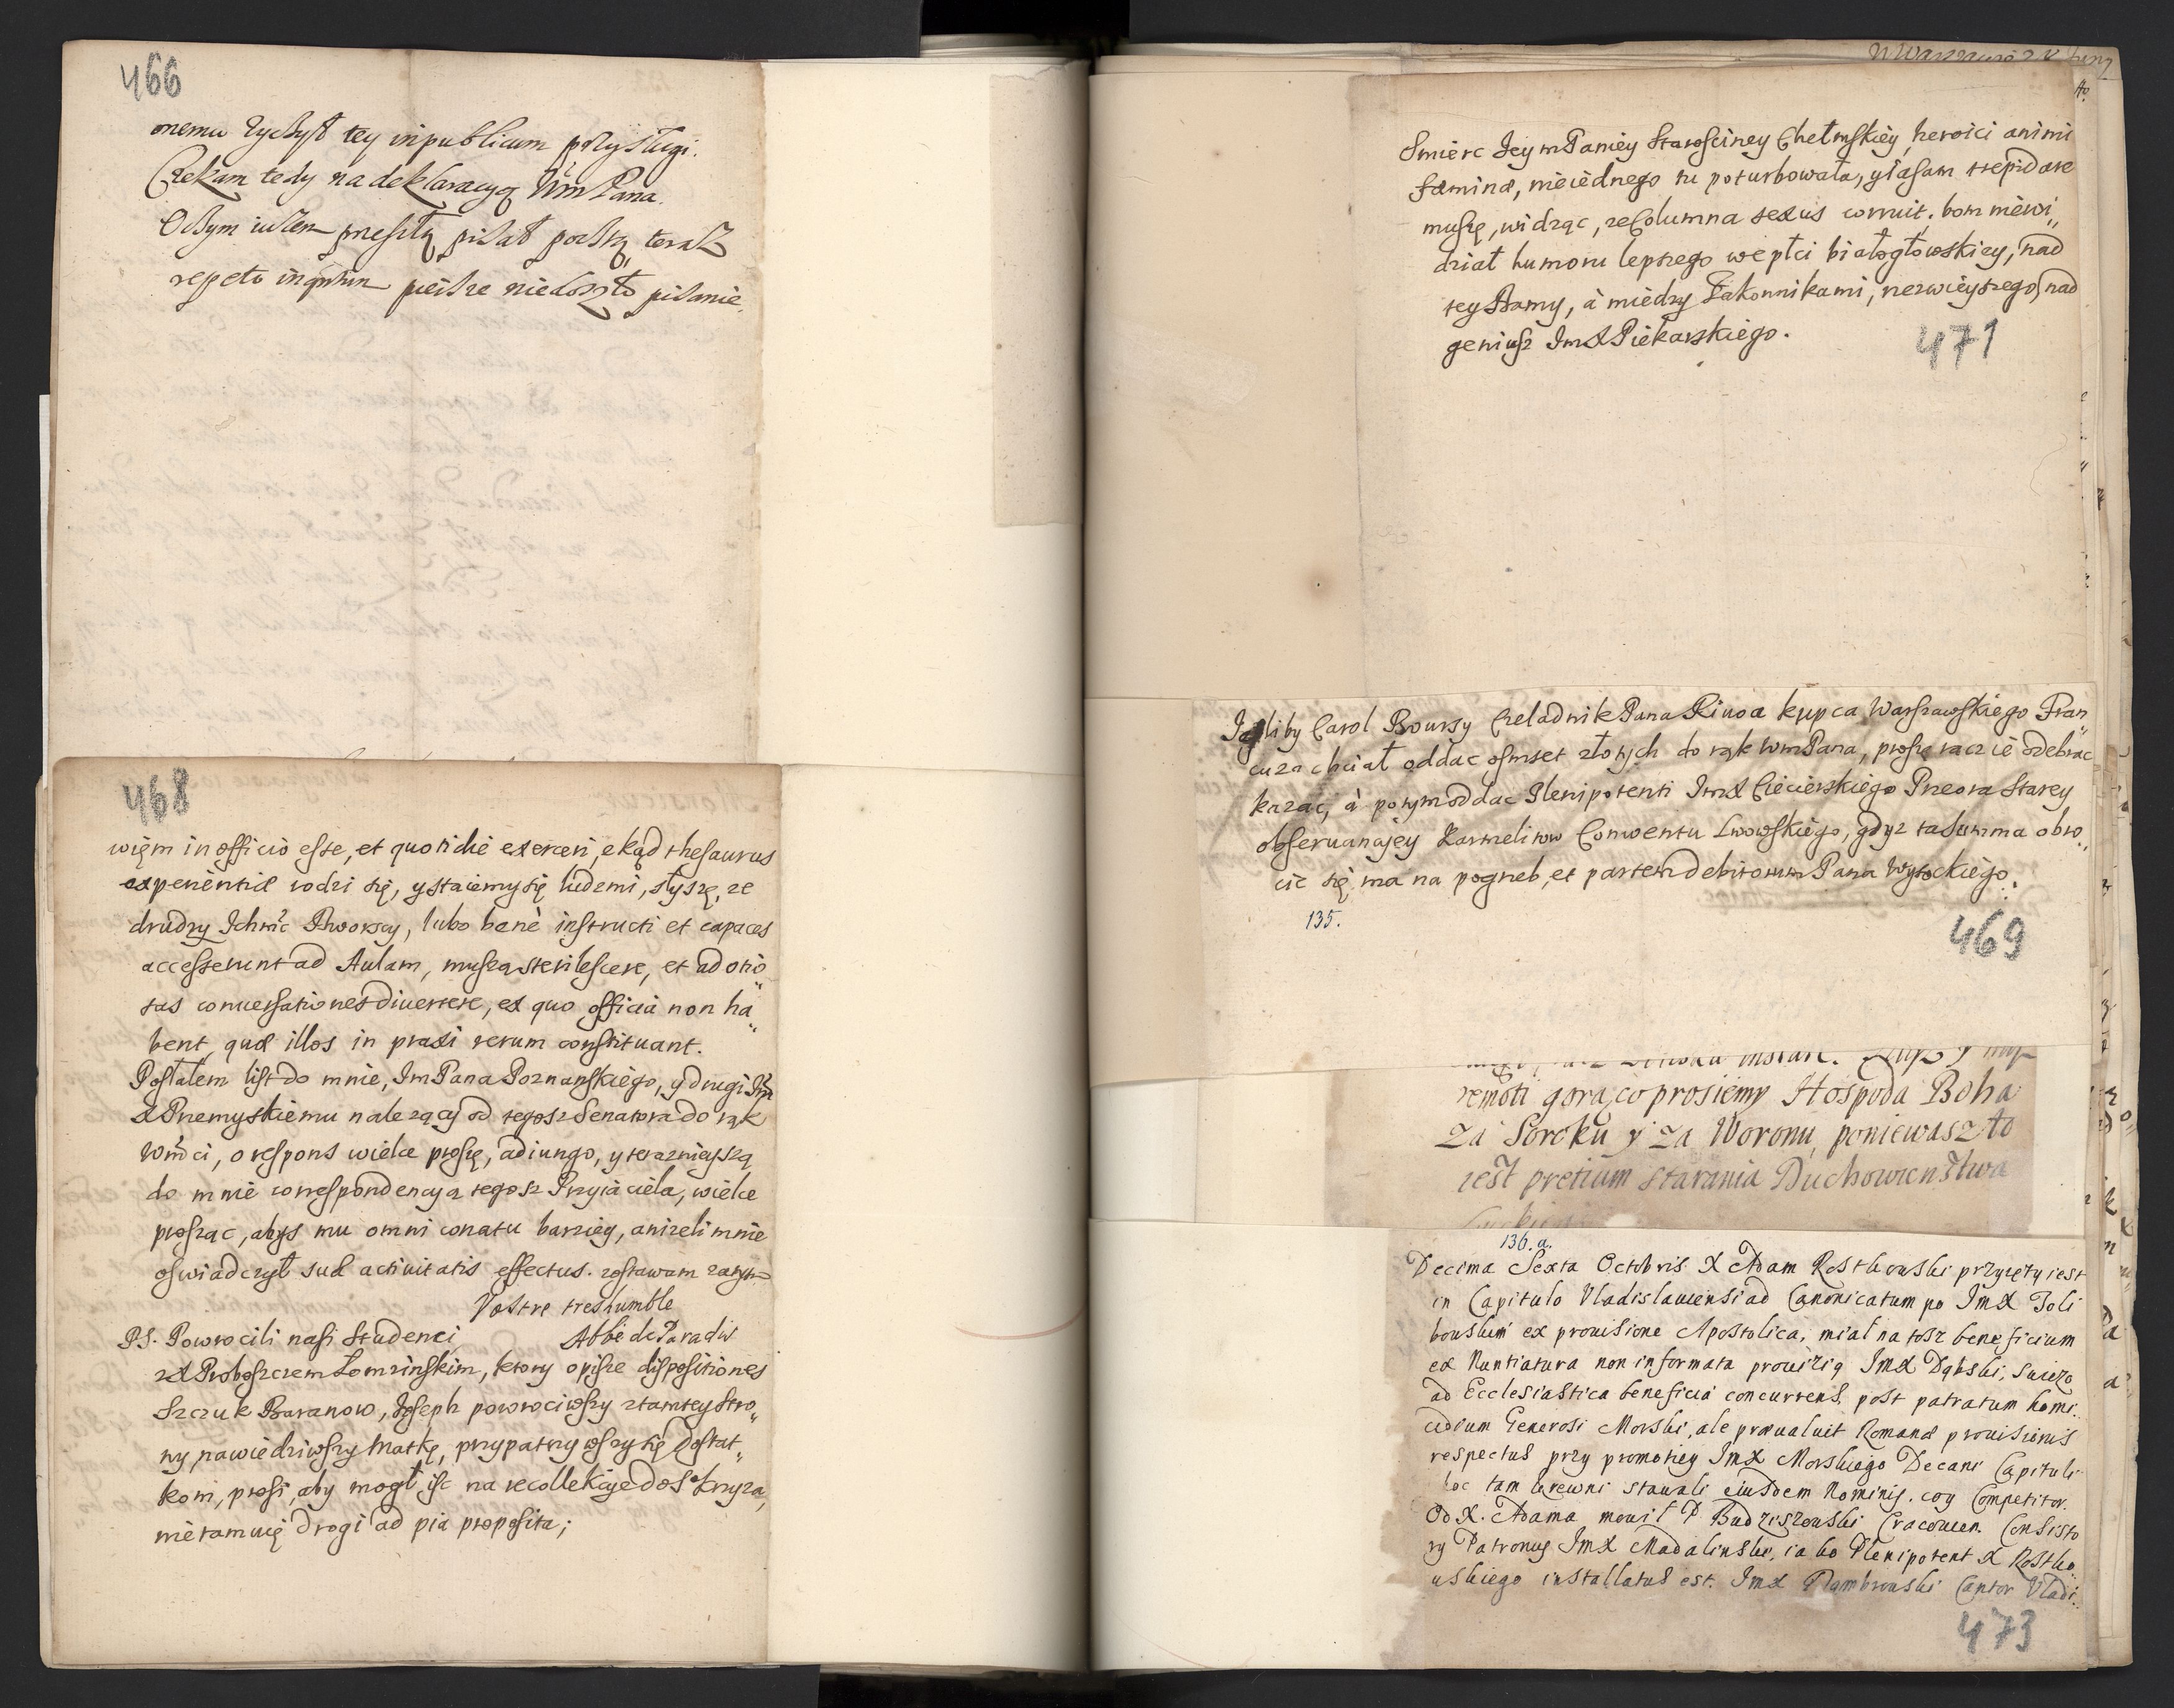 466
onemu życzył tey in publicum przysługi.
Czekam tedy na deklaracyą Wm Pana.
O czym iużem przeszłą pisał pocztą, teraz
repeto in quantum pierwsze niedoszło pisanie.
468
więm in officio esse, et quotidie exerceri, zkąd thesaurus
experientiæ rodzi się, y staiemy się ludzmi, słyszę, ze
drudzy Ichmć Dworscy, lubo benè instructi et capaces
accesserunt ad Aulam, muszą sterilescere, et ad otio„
sas conuersationes diuertere, ex quo officia non ha„
bent, quæ illos in praxi rerum constituant.
Posłałem list do mnie, Im Pana Poznanskiego, y drugi Im
X Przemyskiemu nalezący od tegosz Senatora do rąk
Wmći, o respons wielce proszę, adiungo, y terazniejszą
do mnie correspondencyą tegosz Przyiaciela, wielce
prosząc, abys mu omni conatu barziey, anizeli mnie
oswiadczył suæ actiuitatis effectus. zostawam
Vostre treshumble
PS. Powrocili nasi Studenci Abbé de Paradis
z X Proboszczem Łomzinskim, ktory opisze dispositiones
Szczuk Baranow, Joseph powrociwszy z tamtey stro„
ny, nawiedziwszy Matkę, przypatrzywszy się dostat„
kom, prosi, aby mogł iść na recollekcye do S. Krzyza,
nietamuię drogi ad pia proposita;
W Warszawie
Smierc Jeym Paniey Starosciney Chełmskiey, heroici animi
fæminæ, nieiednego tu poturbowała, y ia sam trepidare
muszę, widząc, ze Columna sexus corruit. bom niewi„
dział humoru lepszego we płci białogłowskiey, nad
tey Damy, à między Zakonnikami, nezwieyszego, nad
geniusz ImX Piekarskiego.
471
Jesliby Carol Boursy Czeladnik Pana Riuoa kupca Warszawskiego Fran„
cuza chciał oddac osmset złotych do rąk Wm Pana, proszę raczie odebrac
kazac, à potym oddac Plenipotenti ImX Ciecierskiego Przeora Starey
obseruancyey Karmelitow Conwentu Lwowskiego, gdyz ta Summa obro„
cic się ma na pogrzeb, et partem debitorum Pana Wysockiego.
135.
469
remoti gorąco prosiemy Hospoda Boha
Za Soroku y Za Woronu, poniewasz to
iest pretium starania Duchowienstwa
136.a.
Decima Sexta Octobris X Adam Rostkowski przyięty iest
in Capitulo Vladislauiensi ad Canonicatum po ImX Joli
bowskim ex prouisione Apostolica, miał na tosz beneficium
ex Nuntiatura non informata prouizią ImX Dąbski, swiezo
ad Ecclesiastica beneficia concurrens, post patratum homi„
cidium Generosi Morski, ale præualuit Romanæ prouisionis
respectus przy promotiey ImX Morskiego Decani Capituli
bo tam krewni stawali eiusdem Nominis. coy Competitor.
Od X. Adama mowił P Budziszowski Cracouien. Consisto
ry Patronus ImX Madalinski, iako Plenipotent X Rostko„
wskiego installatus est. ImX Dąmbrowski Cantor Vladi„
473